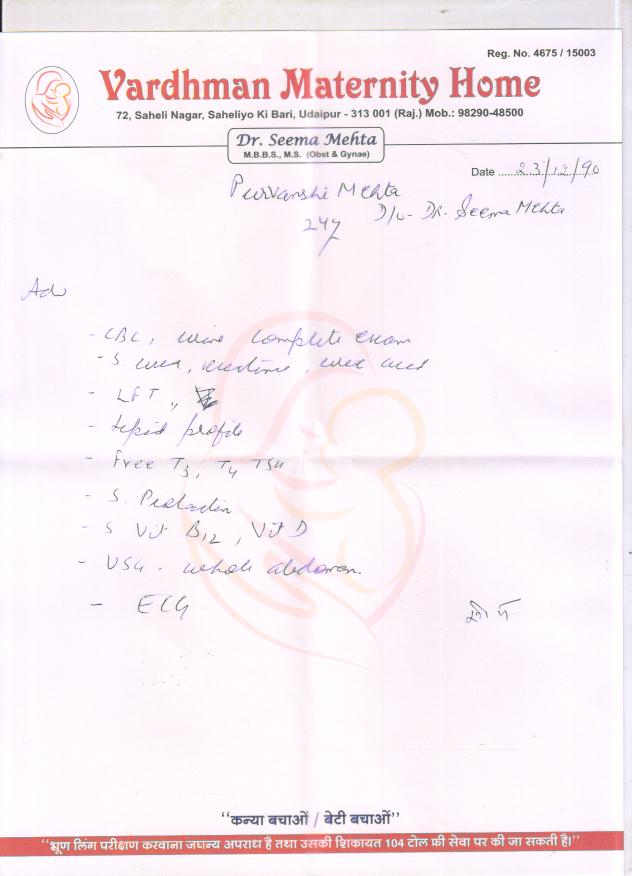 Reg. No. 4675 / 15003
Vardhman Maternity Home
72, Saheli Nagar, Saheliyo Ki Bari, Udaipur - 313 001 (Raj.) Mob.: 98290-48500
Dr. Seema Mehta
M.B.B.S., M.S. (Obst & Gynae)
Date ..... 23/12/90
Purvanshi Mehta
24y D/o - DR. Seema Mehta
Adv
- CBC, urine complete exam
- S. urea, creatinine, uric acid
- LFT,
- Lipid profile
- Free T3, T4 TSH
- S. Prolactin
- S Vit B12, Vit D
- USG. whole abdomen.
- ECG
“कन्या बचाओं / बेटी बचाओं”
“भ्रूण लिंग परीक्षण करवाना जघन्य अपराध है तथा उसकी शिकायत 104 टोल फ्री सेवा पर की जा सकती है।”